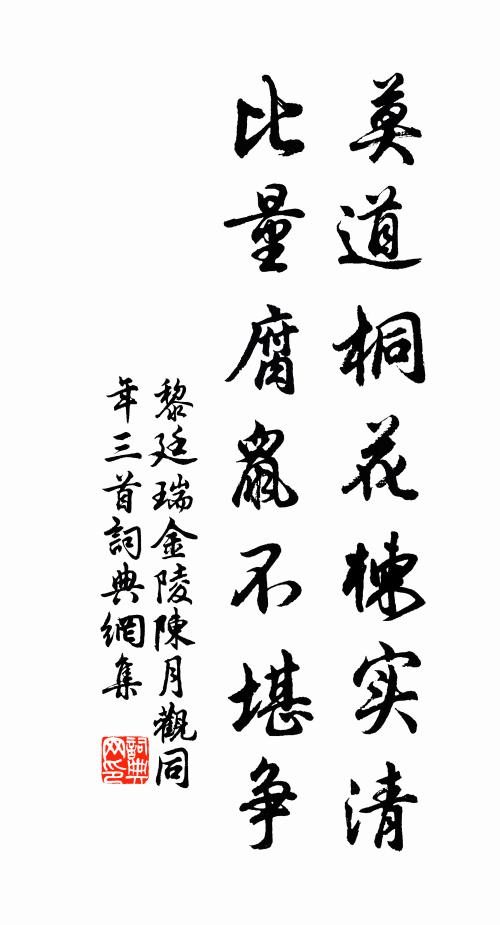 莫道桐花楝实清
比量腐鼠不堪争
黎廷瑞金陵陳月觀同
年三首詞典網集
詞典
网印